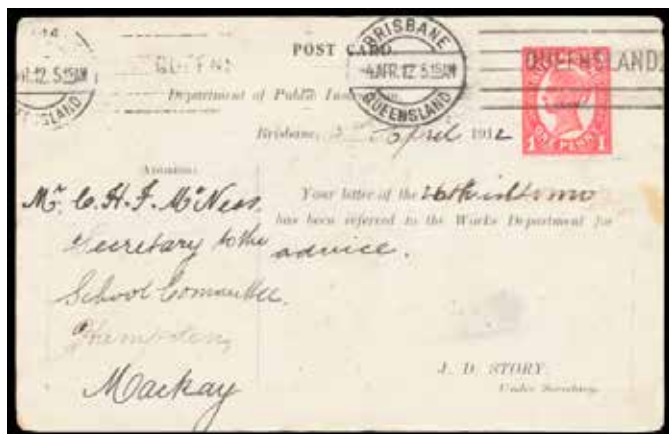 POST CARD.
BRISBANE
4 APR. 12 5.15AM
QUEENSLAND
QUEENSLAND
Department of Public Instruction,
Brisbane, April 1912
ONE PENNY
1 1
ADDRESS:
Mr. C. H. F. McNess,
Secretary to the
School Committee,
Mackay
Your letter of the
has been referred to the Works Department for
advice.
J. D. STORY,
Under Secretary.